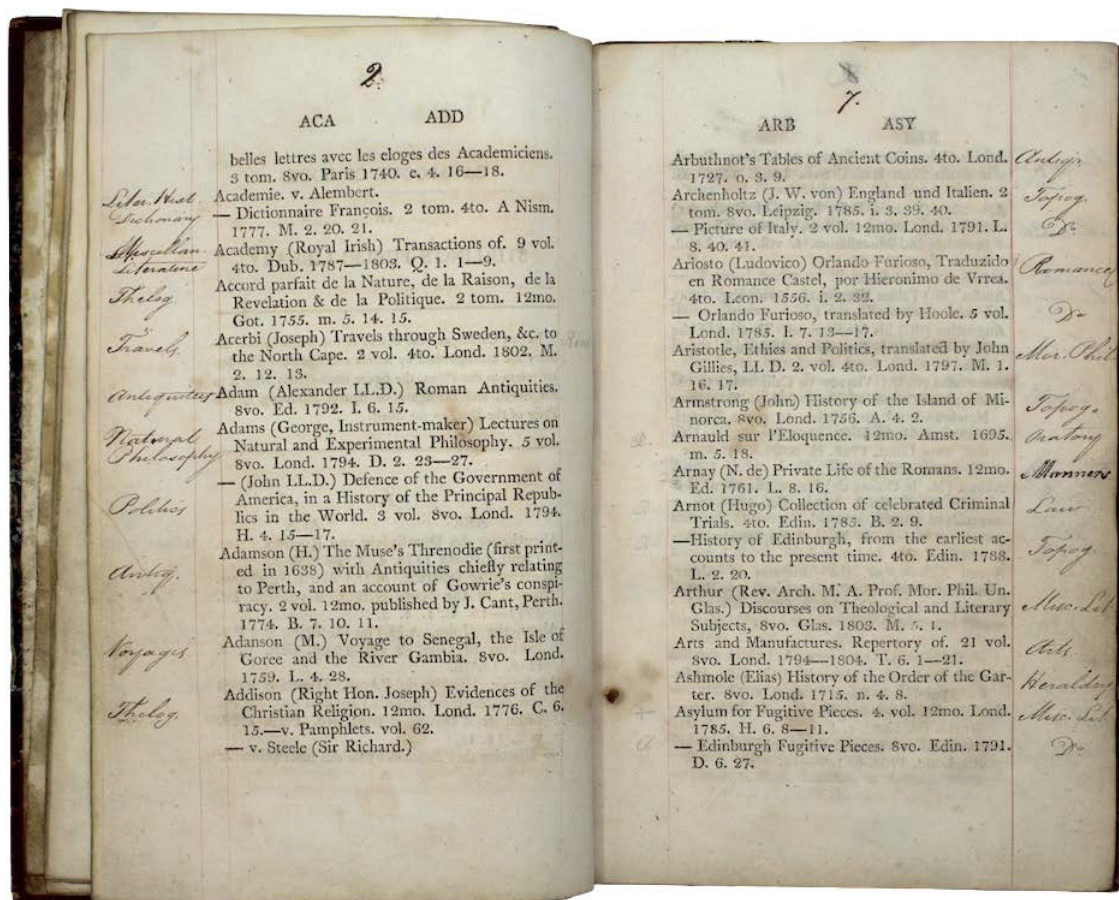 2.
ACA ADD
belles lettres avec les eloges des Academiciens.
3 tom. 8vo. Paris 1740. e. 4. 16—18.
Liter. Hist. Academie. v. Alembert.
Dictionary — Dictionnaire François. 2 tom. 4to. A Nism.
1777. M. 2. 20. 21.
Miscellan. Academy (Royal Irish) Transactions of. 9 vol.
Literature 4to. Dub. 1787—1803. Q. 1. 1—9.
Accord parfait de la Nature, de la Raison, de la
Thelog. Revelation & de la Politique. 2 tom. 12mo.
Got. 1755. m. 5. 14. 15.
Travels. Acerbi (Joseph) Travels through Sweden, &c. to
the North Cape. 2 vol. 4to. Lond. 1802. M.
2. 12. 13.
Antiquities Adam (Alexander LL.D.) Roman Antiquities.
8vo. Ed. 1792. I. 6. 15.
Natural Adams (George, Instrument-maker) Lectures on
Philosophy Natural and Experimental Philosophy. 5 vol.
8vo. Lond. 1794. D. 2. 23—27.
— (John LL.D.) Defence of the Government of
Politics America, in a History of the Principal Repub-
lics in the World. 3 vol. 8vo. Lond. 1794.
H. 4. 15—17.
Adamson (H.) The Muse's Threnodie (first print-
Antiq. ed in 1638) with Antiquities chiefly relating
to Perth, and an account of Gowrie's conspi-
racy. 2 vol. 12mo. published by J. Cant, Perth.
1774. B. 7. 10. 11.
Voyages Adanson (M.) Voyage to Senegal, the Isle of
Goree and the River Gambia. 8vo. Lond.
1759. L. 4. 28.
Thelog. Addison (Right Hon. Joseph) Evidences of the
Christian Religion. 12mo. Lond. 1776. C. 6.
15.—v. Pamphlets. vol. 62.
— v. Steele (Sir Richard.)
7.
ARB ASY
Arbuthnot's Tables of Ancient Coins. 4to. Lond. Antiqs
1727. o. 3. 9.
Archenholtz (J. W. von) England und Italien. 2 Topog.
tom. 8vo. Leipzig. 1785. i. 3. 39. 40.
— Picture of Italy. 2 vol. 12mo. Lond. 1791. L. Do
8. 40. 41.
Ariosto (Ludovico) Orlando Furioso, Traduzido Romance
en Romance Castel, por Hieronimo de Vrrea.
4to. Leon. 1556. i. 2. 32.
— Orlando Furioso, translated by Hoole. 5 vol. Do
Lond. 1785. I. 7. 13—17.
Aristotle, Ethics and Politics, translated by John Mor. Phil
Gillies, LL D. 2. vol. 4to. Lond. 1797. M. 1.
16. 17.
Armstrong (John) History of the Island of Mi- Topog.
norca. 8vo. Lond. 1756. A. 4. 2.
Arnauld sur l'Eloquence. 12mo. Amst. 1695. Oratory
m. 5. 18.
Arnay (N. de) Private Life of the Romans. 12mo. Manners
Ed. 1761. L. 8. 16.
Arnot (Hugo) Collection of celebrated Criminal Law
Trials. 4to. Edin. 1785. B. 2. 9.
—History of Edinburgh, from the earliest ac- Topog
counts to the present time. 4to. Edin. 1788.
L. 2. 20.
Arthur (Rev. Arch. M. A. Prof. Mor. Phil. Un.
Glas.) Discourses on Theological and Literary Misc. Lit
Subjects, 8vo. Glas. 1803. M. 5. 1.
Arts and Manufactures. Repertory of. 21 vol. Arts.
8vo. Lond. 1794—1804. T. 6. 1—21.
Ashmole (Elias) History of the Order of the Gar- Heraldry
ter. 8vo. Lond. 1715. n. 4. 8.
Asylum for Fugitive Pieces. 4. vol. 12mo. Lond. Misc. Lit
1785. H. 6. 8—11.
— Edinburgh Fugitive Pieces. 8vo. Edin. 1791. Do
D. 6. 27.